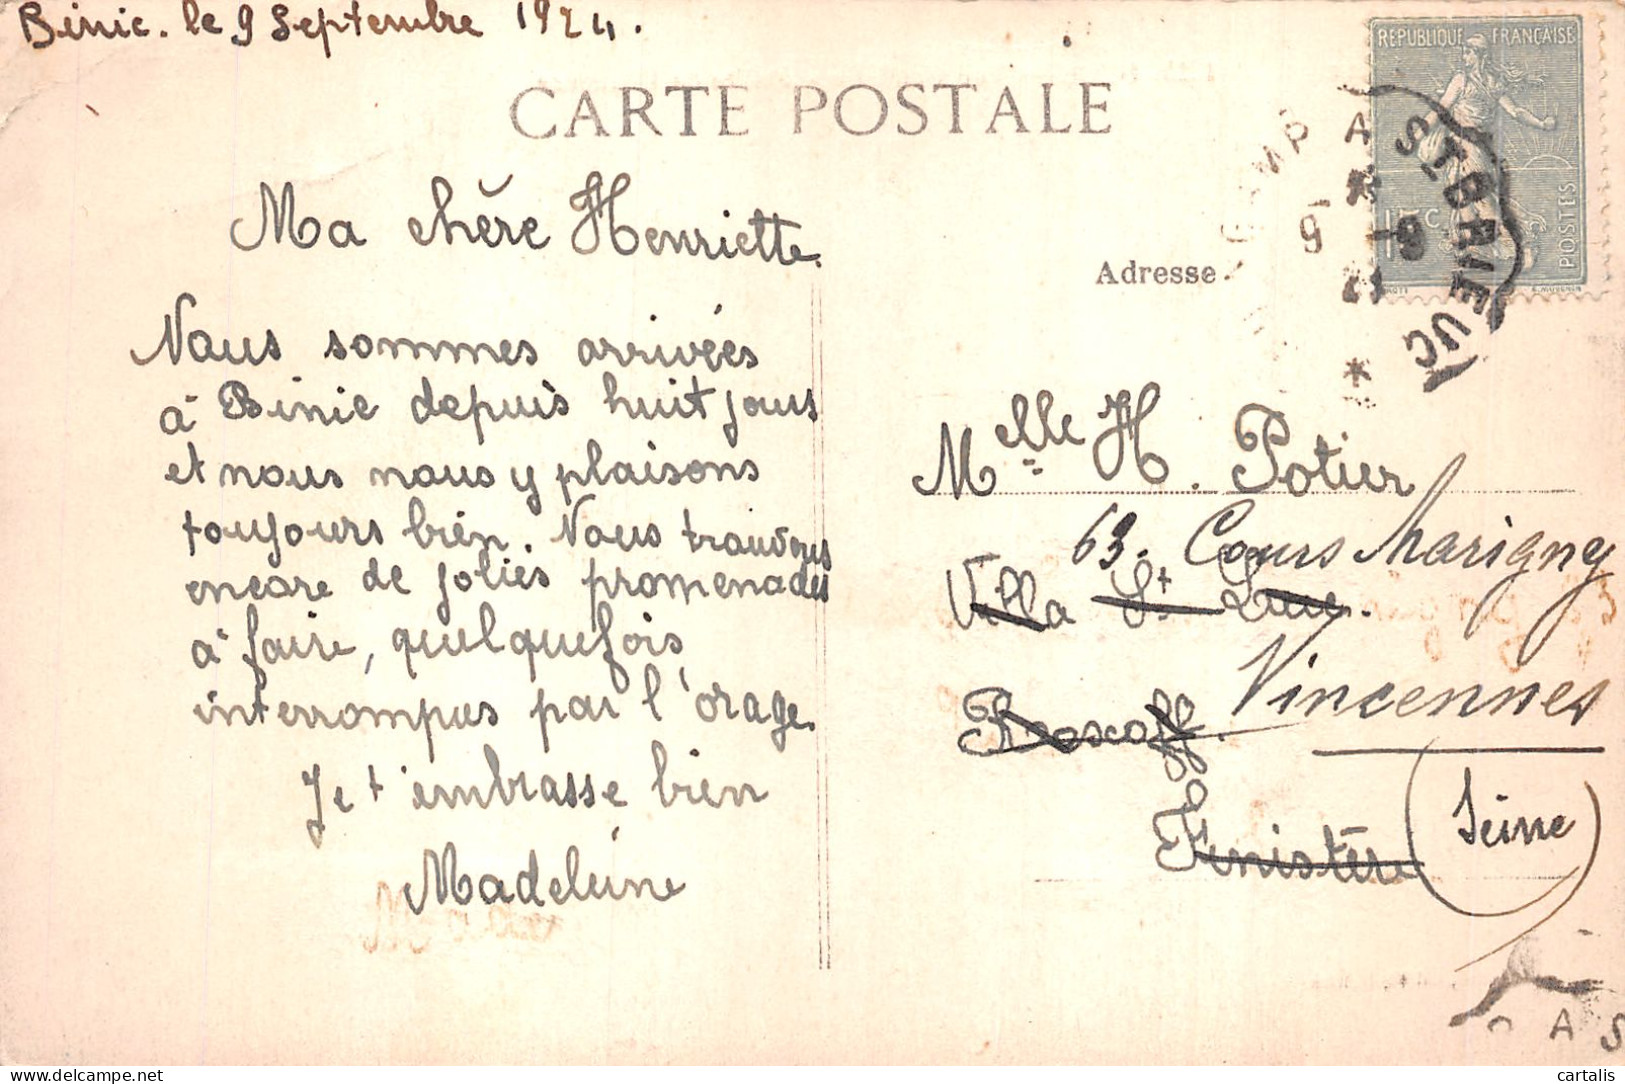 Binic. le 9 Septembre 1924.
CARTE POSTALE
RÉPUBLIQUE FRANÇAISE
15c
POSTES
A ST BRIEUC
9 -9
24
Ma chère Henriette.
Nous sommes arrivées
à Binic depuis huit jours
et nous nous y plaisons
toujours bien. Nous trouvons
encore de jolies promenades
à faire, quelquefois
interrompus par l'orage.
Je t'embrasse bien
Madeleine
Adresse
Melle H. Potier
63. Cours Marigny
Villa St Luc.
Vincennes
Roscoff.
(Seine)
Finistère
cartalis